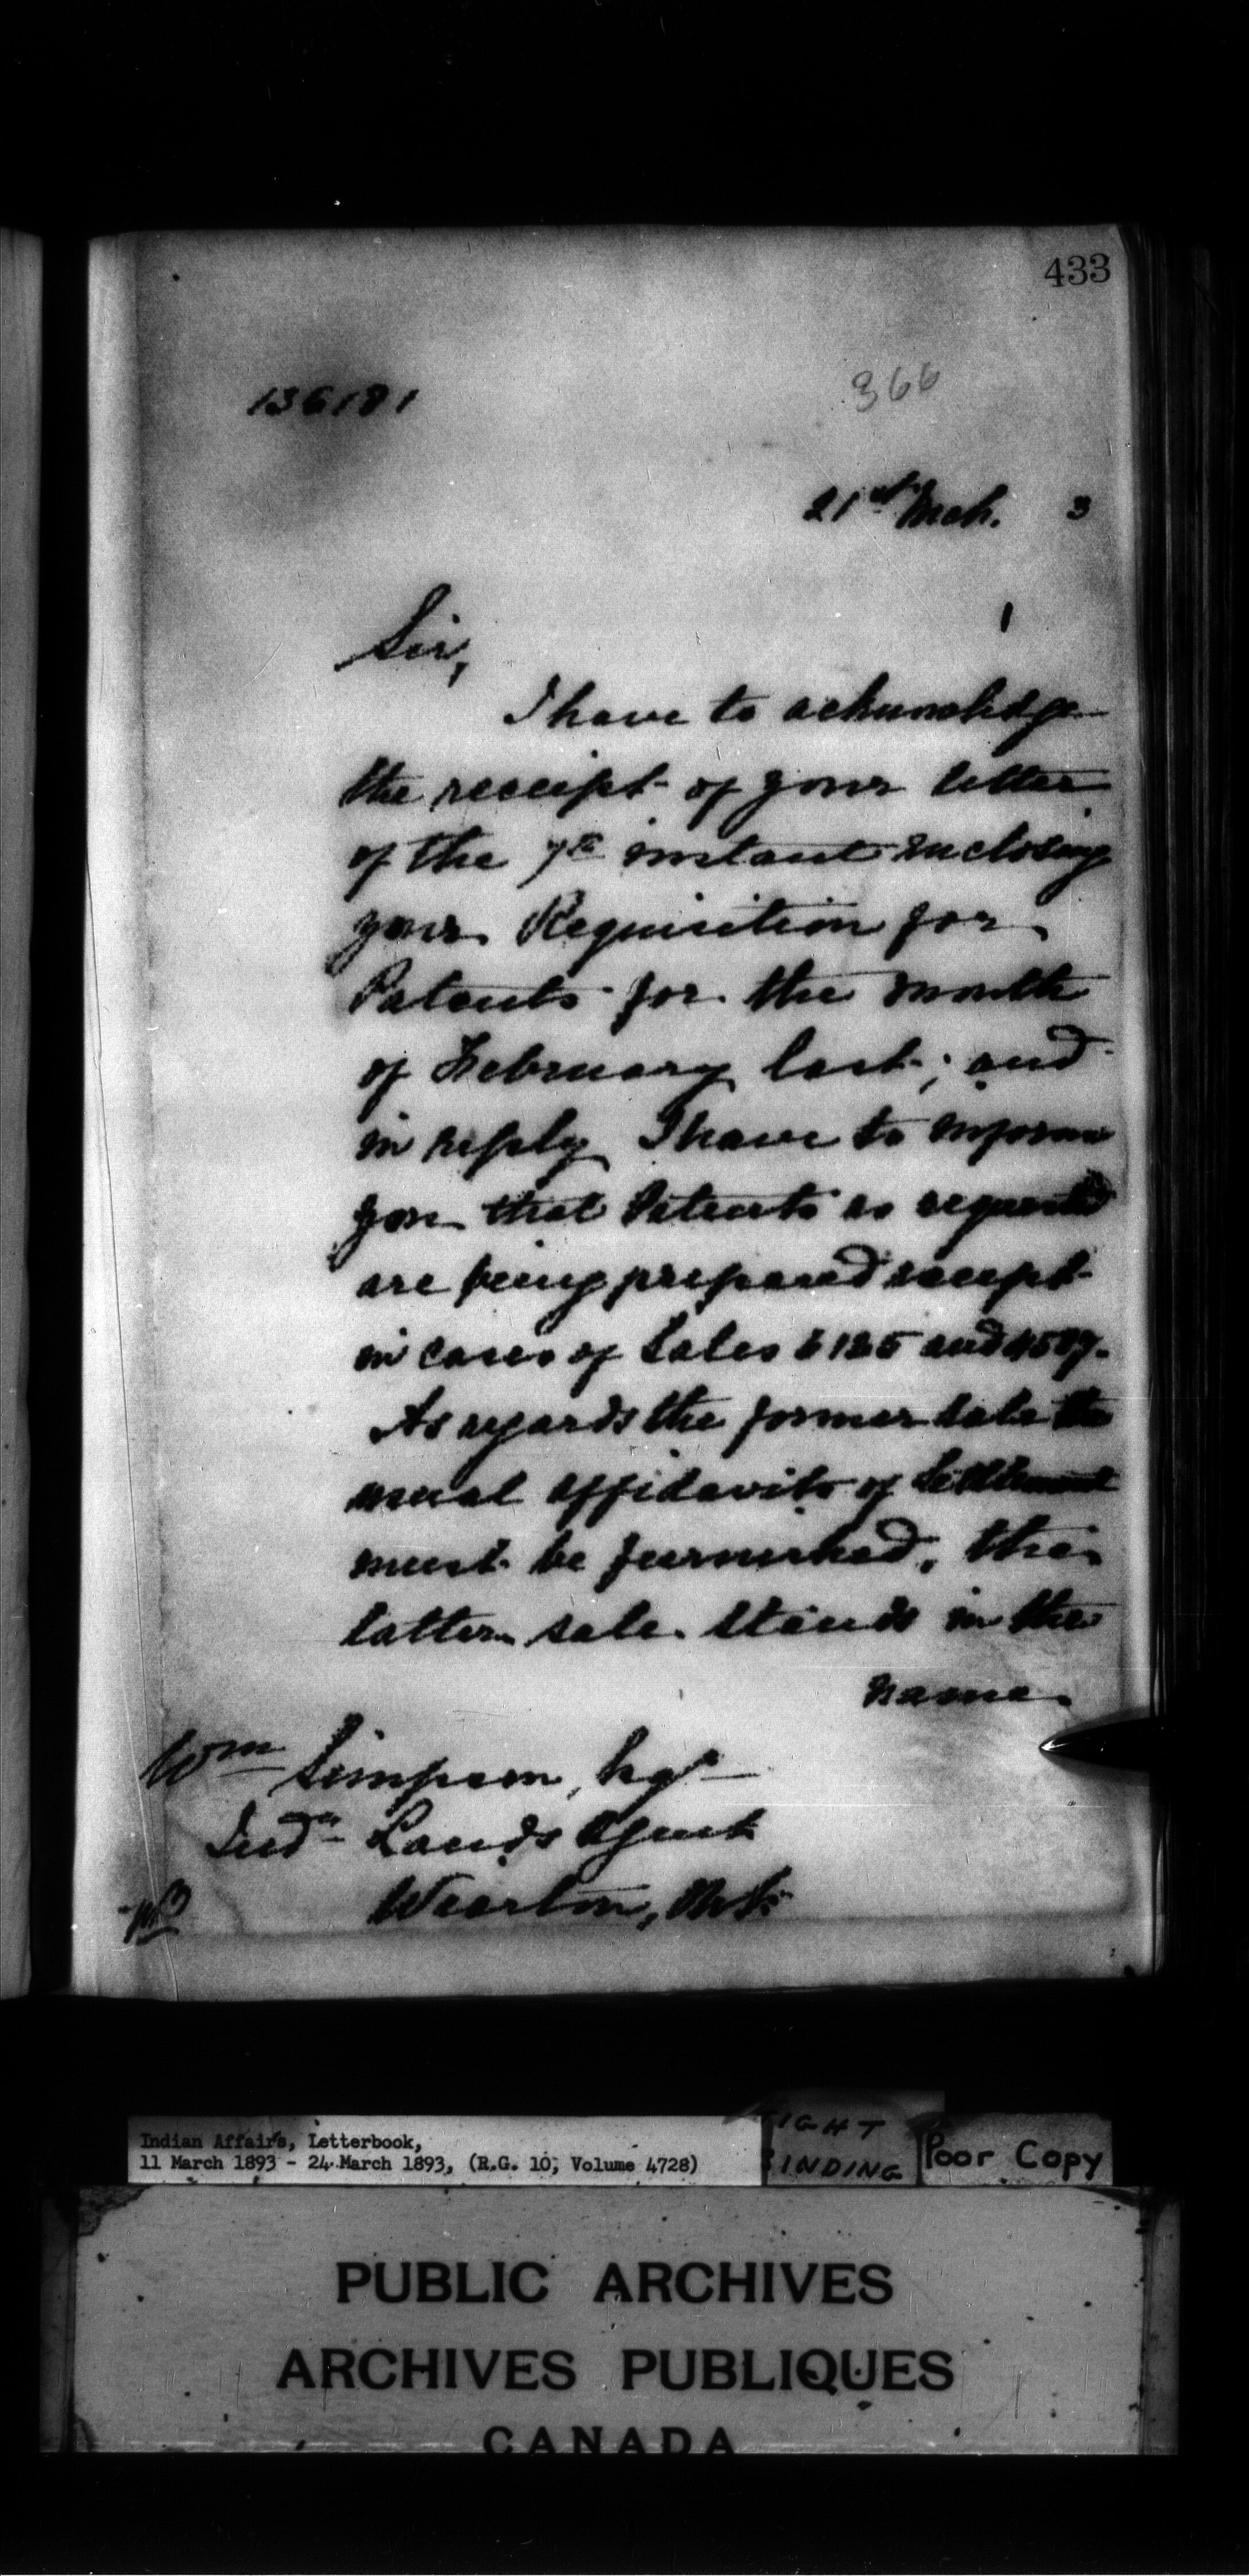 433
366
136181
21st Mch. 3
Sir,
I have to acknowledge
the receipt of your letter
of the 7th instant enclosing
your Requisition for
Patents for the month
of February last; and
in reply I have to inform
you that Patents as requested
are being prepared except
in cases of Sales 6125 and 4507.
As regards the former sale the
usual affidavits of Settlement
must be furnished, the
latter sale stands in the
name
Wm Simpson, Esqr
Indn Lands Agent
Wiarton, Ont.
Indian Affairs, Letterbook,
11 March 1893 - 24 March 1893, (R.G. 10, Volume 4728)
TIGHT
BINDING
Poor Copy
PUBLIC ARCHIVES
ARCHIVES PUBLIQUES
CANADA